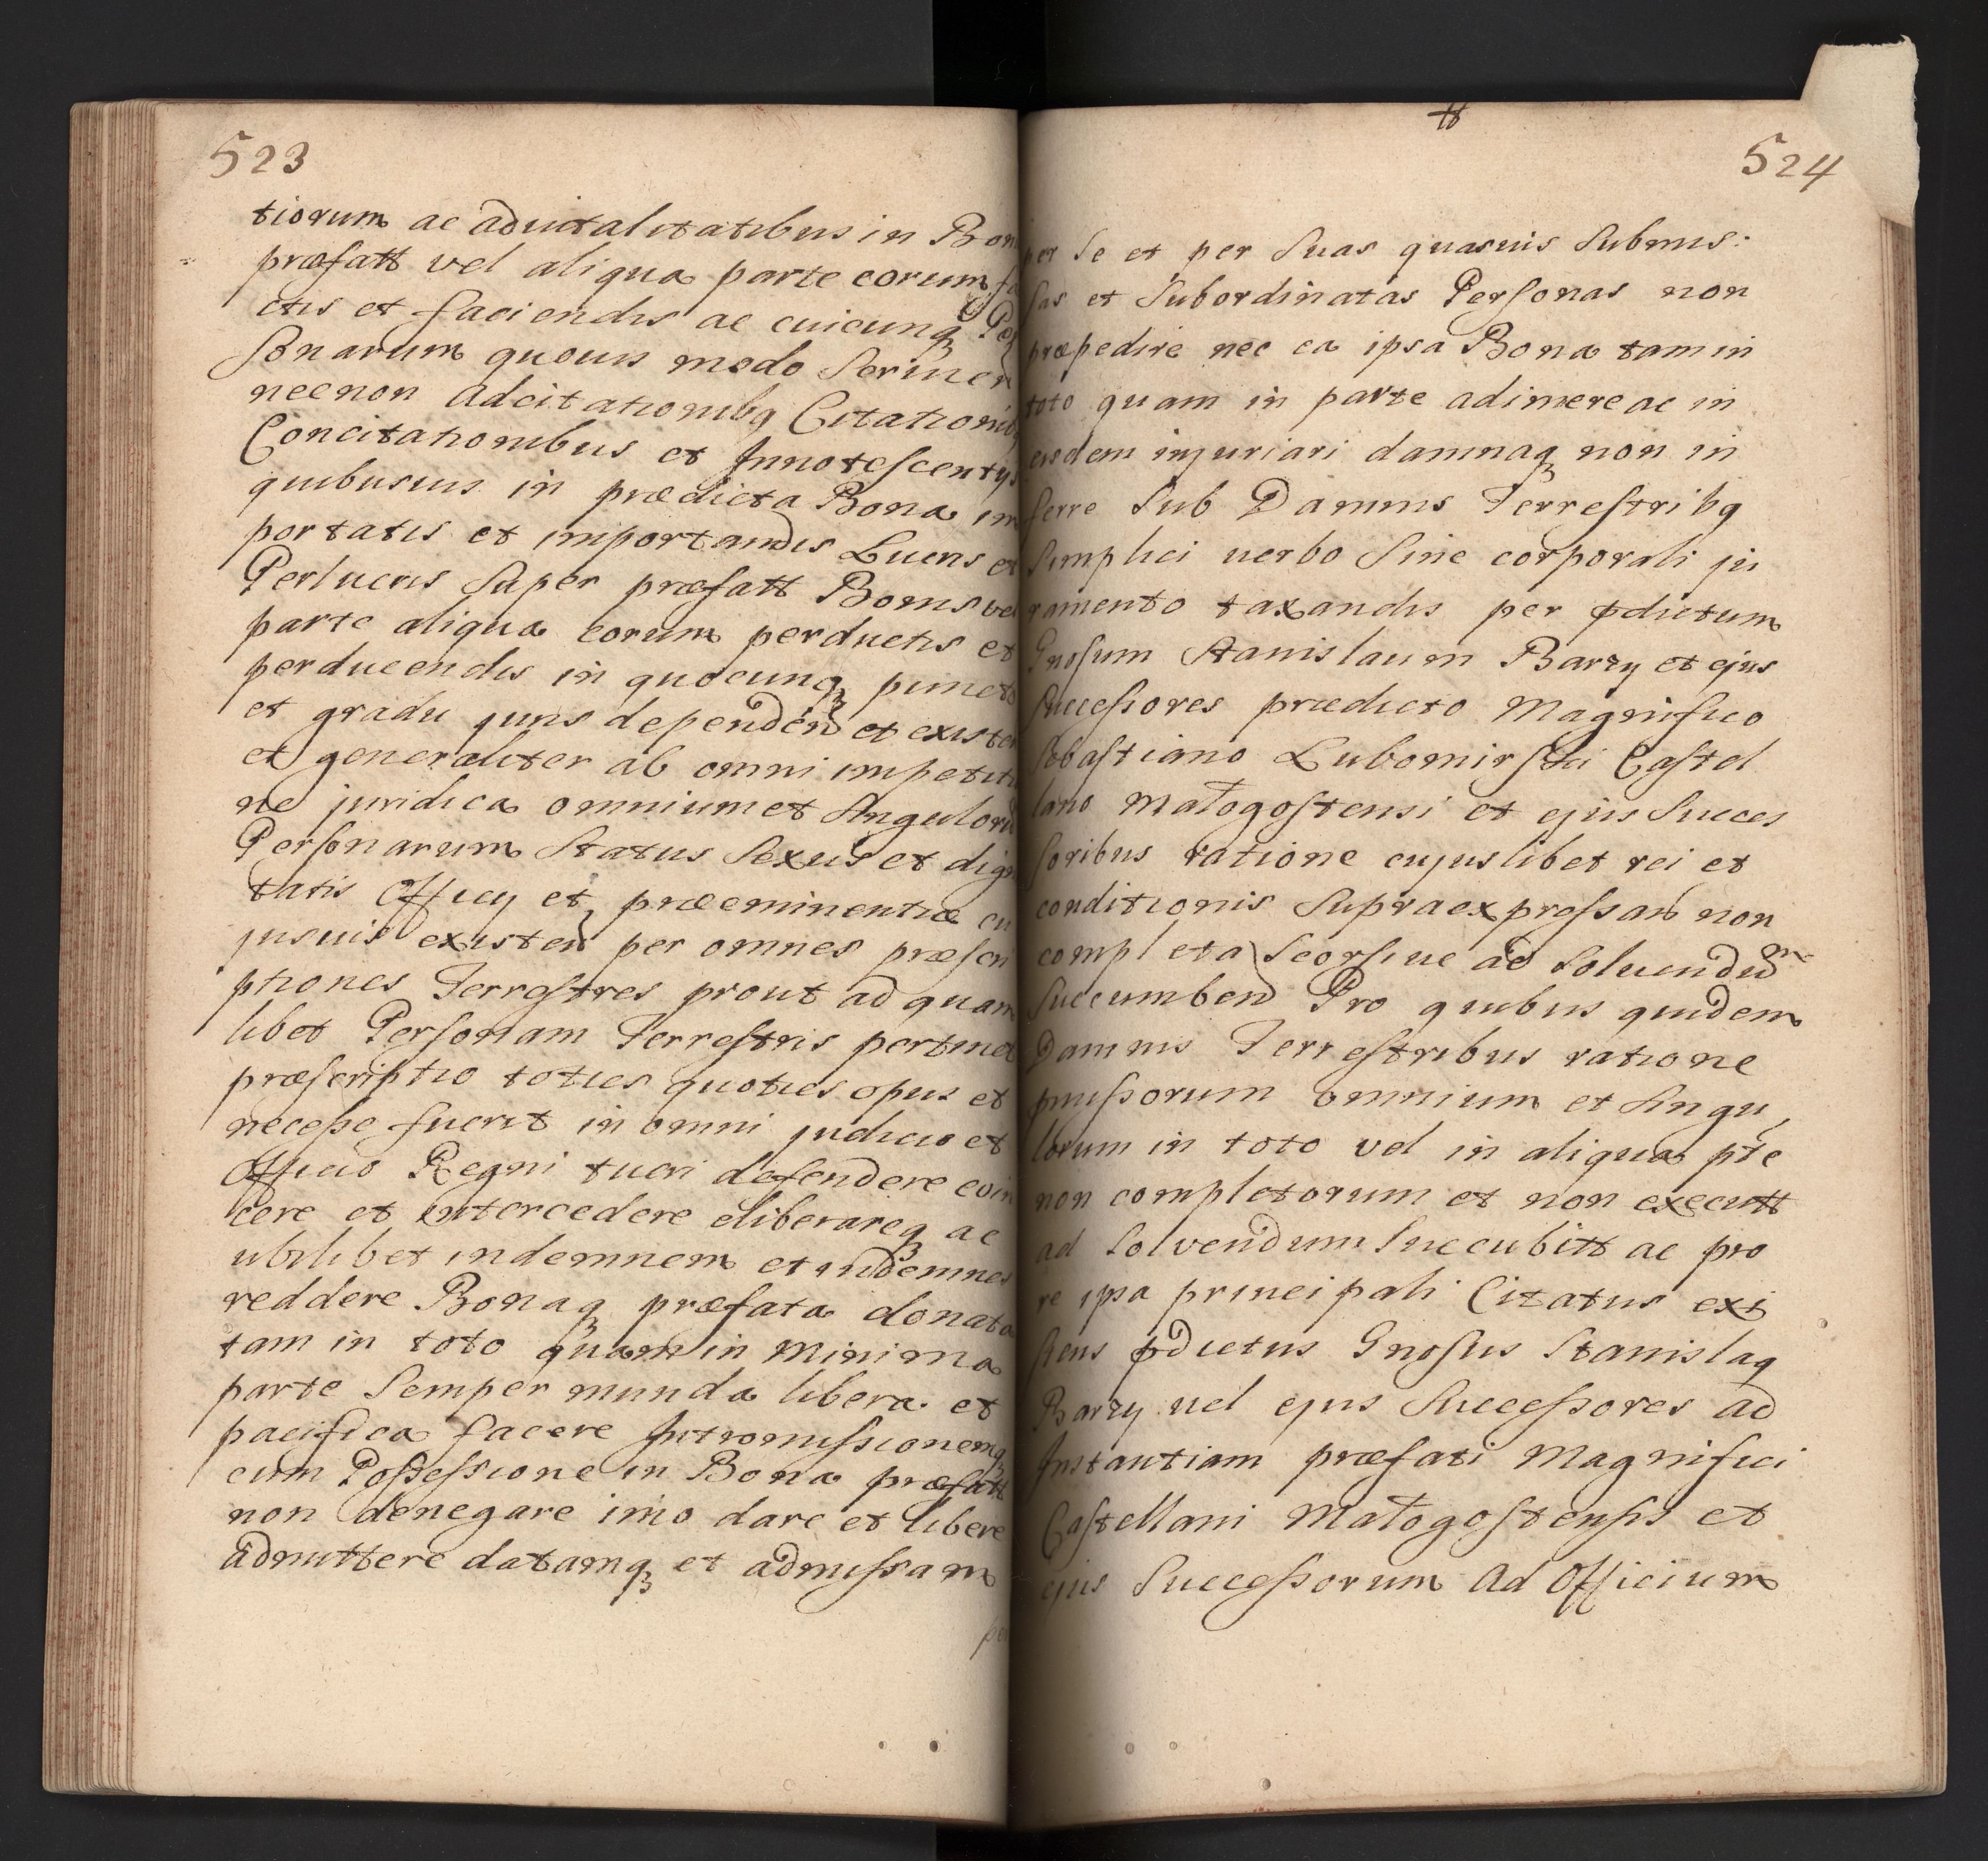 523
tiorum ac aduitalitatibus in Bon
præfatt vel aliqua parte eorum fa
ctis et faciendis ac cuicunqꝫ Per
sonarum quouis modo Seruien
necnon Adcitationibq Citationibq
Concitationibus et Innotescentys
quibusuis in prædicta Bona im
portatis et importandis Lucris et
Perlucris Super præfatt Bonis vel
parte aliqua eorum perductis et
perducendis in quocunqꝫ puncto
et gradu juris dependen et existen
et generaliter ab omni impetitio
ne juridica omnium et Singulorū
Personarum Status Sexus et digni
tatis Officy et præeminentiæ cu
jusuis existen per omnes præscri
ptiones Terrestres prout ad quam
libet Personam Terrestris pertinet
præscriptio toties quoties opus et
necesse fuerit in omni judicio et
Officio Regni tueri defendere evin
cere et intercedere eliberareqꝫ ac
ubilibet indemnem et indemnes
reddere Bonaqꝫ præfata donata
tam in toto quam in minima
parte Semper munda libera et
pacifica facere Intromissionemqꝫ
cum Possessione in Bona præfatt
non denegare imo dare et libere
admittere datamqꝫ et admissam
per
tt
524
per Se et per Suas quasuis Submis:
sas et Subordinatas Personas non
præpedire nec ea ipsa Bona tam in
toto quam in parte adimere ac in
eisdem injuriari damnaqꝫ non in
ferre Sub Damnis Terrestribq
Simplici uerbo Sine corporali ju
ramento taxandis per pdictum
Gnosum Stanislaum Barzy et ejus
Successores prædicto Magnifico
Sebastiano Lubomirski Castel
lano Małogostensi et ejus Succes
soribus ratione cujuslibet rei et
conditionis Supraexpressan non
completa Seorsiue ad Soluendū
Succumben Pro quibus quidem
Damnis Terrestribus ratione
pmissorum omnium et Singu,
lorum in toto vel in aliqua pte
non completorum et non executt
ad Solvendum Succubitt ac pro
re ipsa principali Citatus exi
stens pdictus Gnosus Stanislaq
Barzy uel ejus Successores ad
Instantiam præfati Magnifici
Castellani Małogostensis et
ejus Successorum Ad Officium